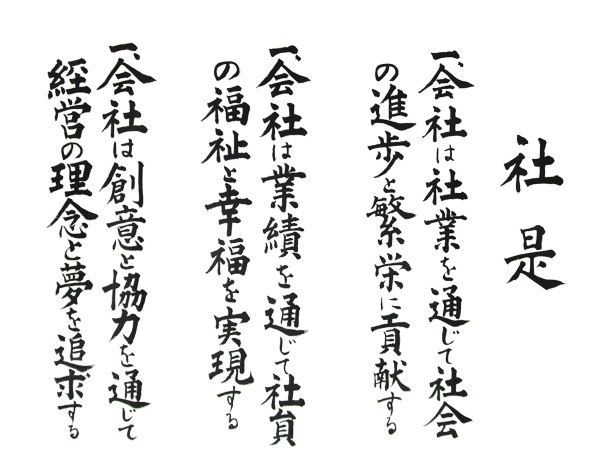 社是
一、会社は社業を通じて社会
の進歩と繁栄に貢献する
一、会社は業績を通じて社員
の福祉と幸福を実現する
一、会社は創意と協力を通じて
経営の理念と夢を追求する